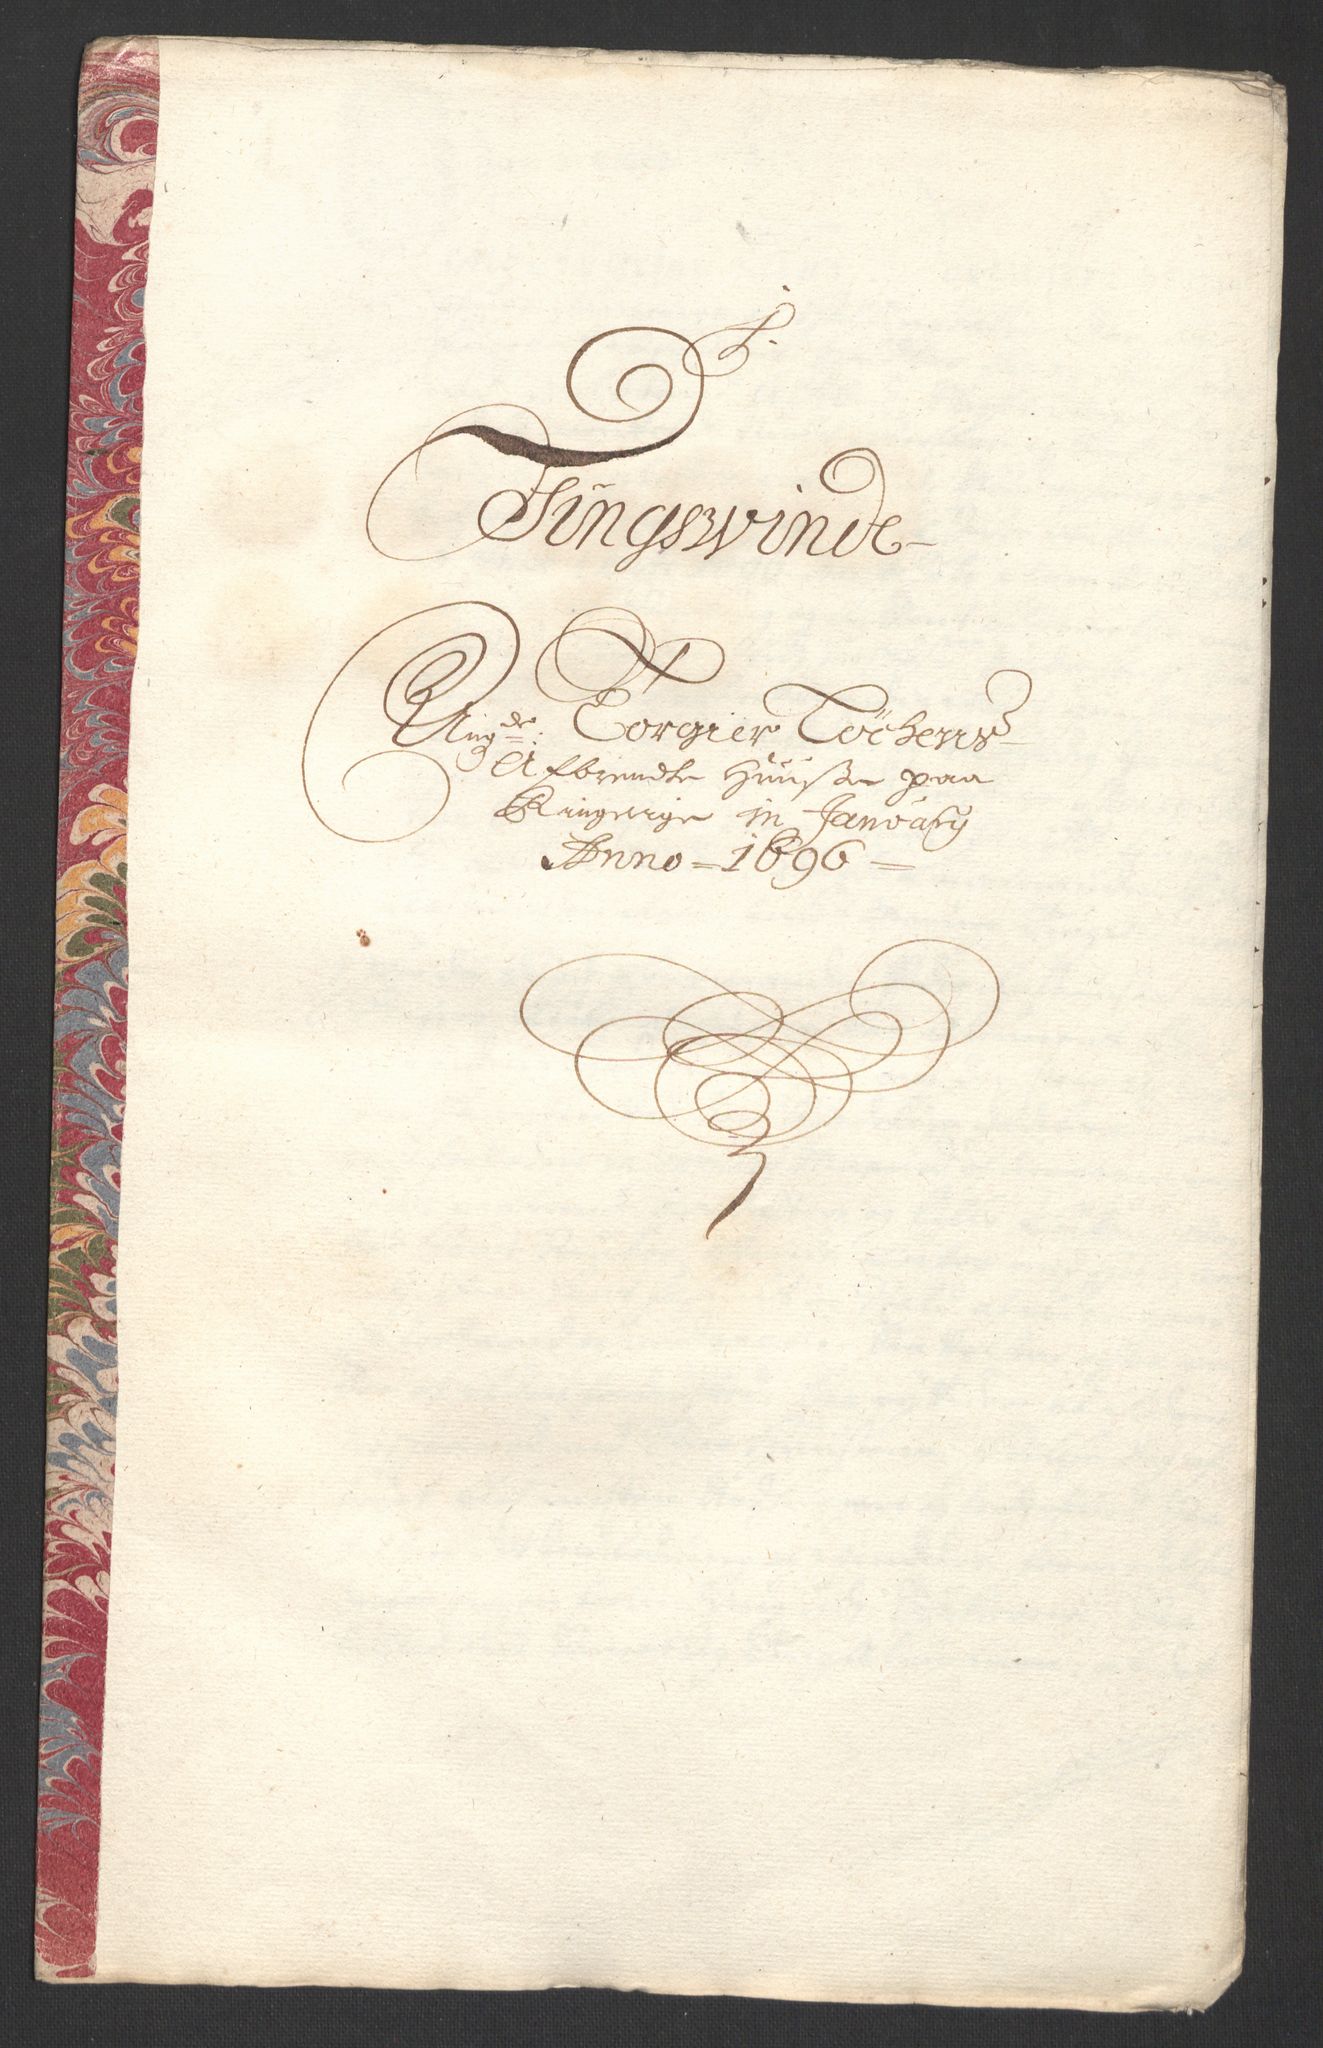 Tingswinde
Ang:de: Torgier
Afbrendte Huuse paa
Ringerige in January
Anno = 1696 =